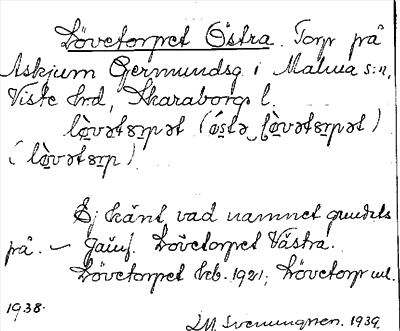 Lövetorpet Östra. Torp på
Askjum Germundsg. i Malma s:n,
Viste hrd, Skaraborgs l.
lö̀vətɷrpət (ö́stə lö̀vətɷrpət)
(lö̀vətɷrp)
Ej känt vad namnet grundats
på. – Jämf. Lövetorpet Västra.
Lövetorpet hb. 1921; Lövetorp
1938.
Svenungsson. 1939.